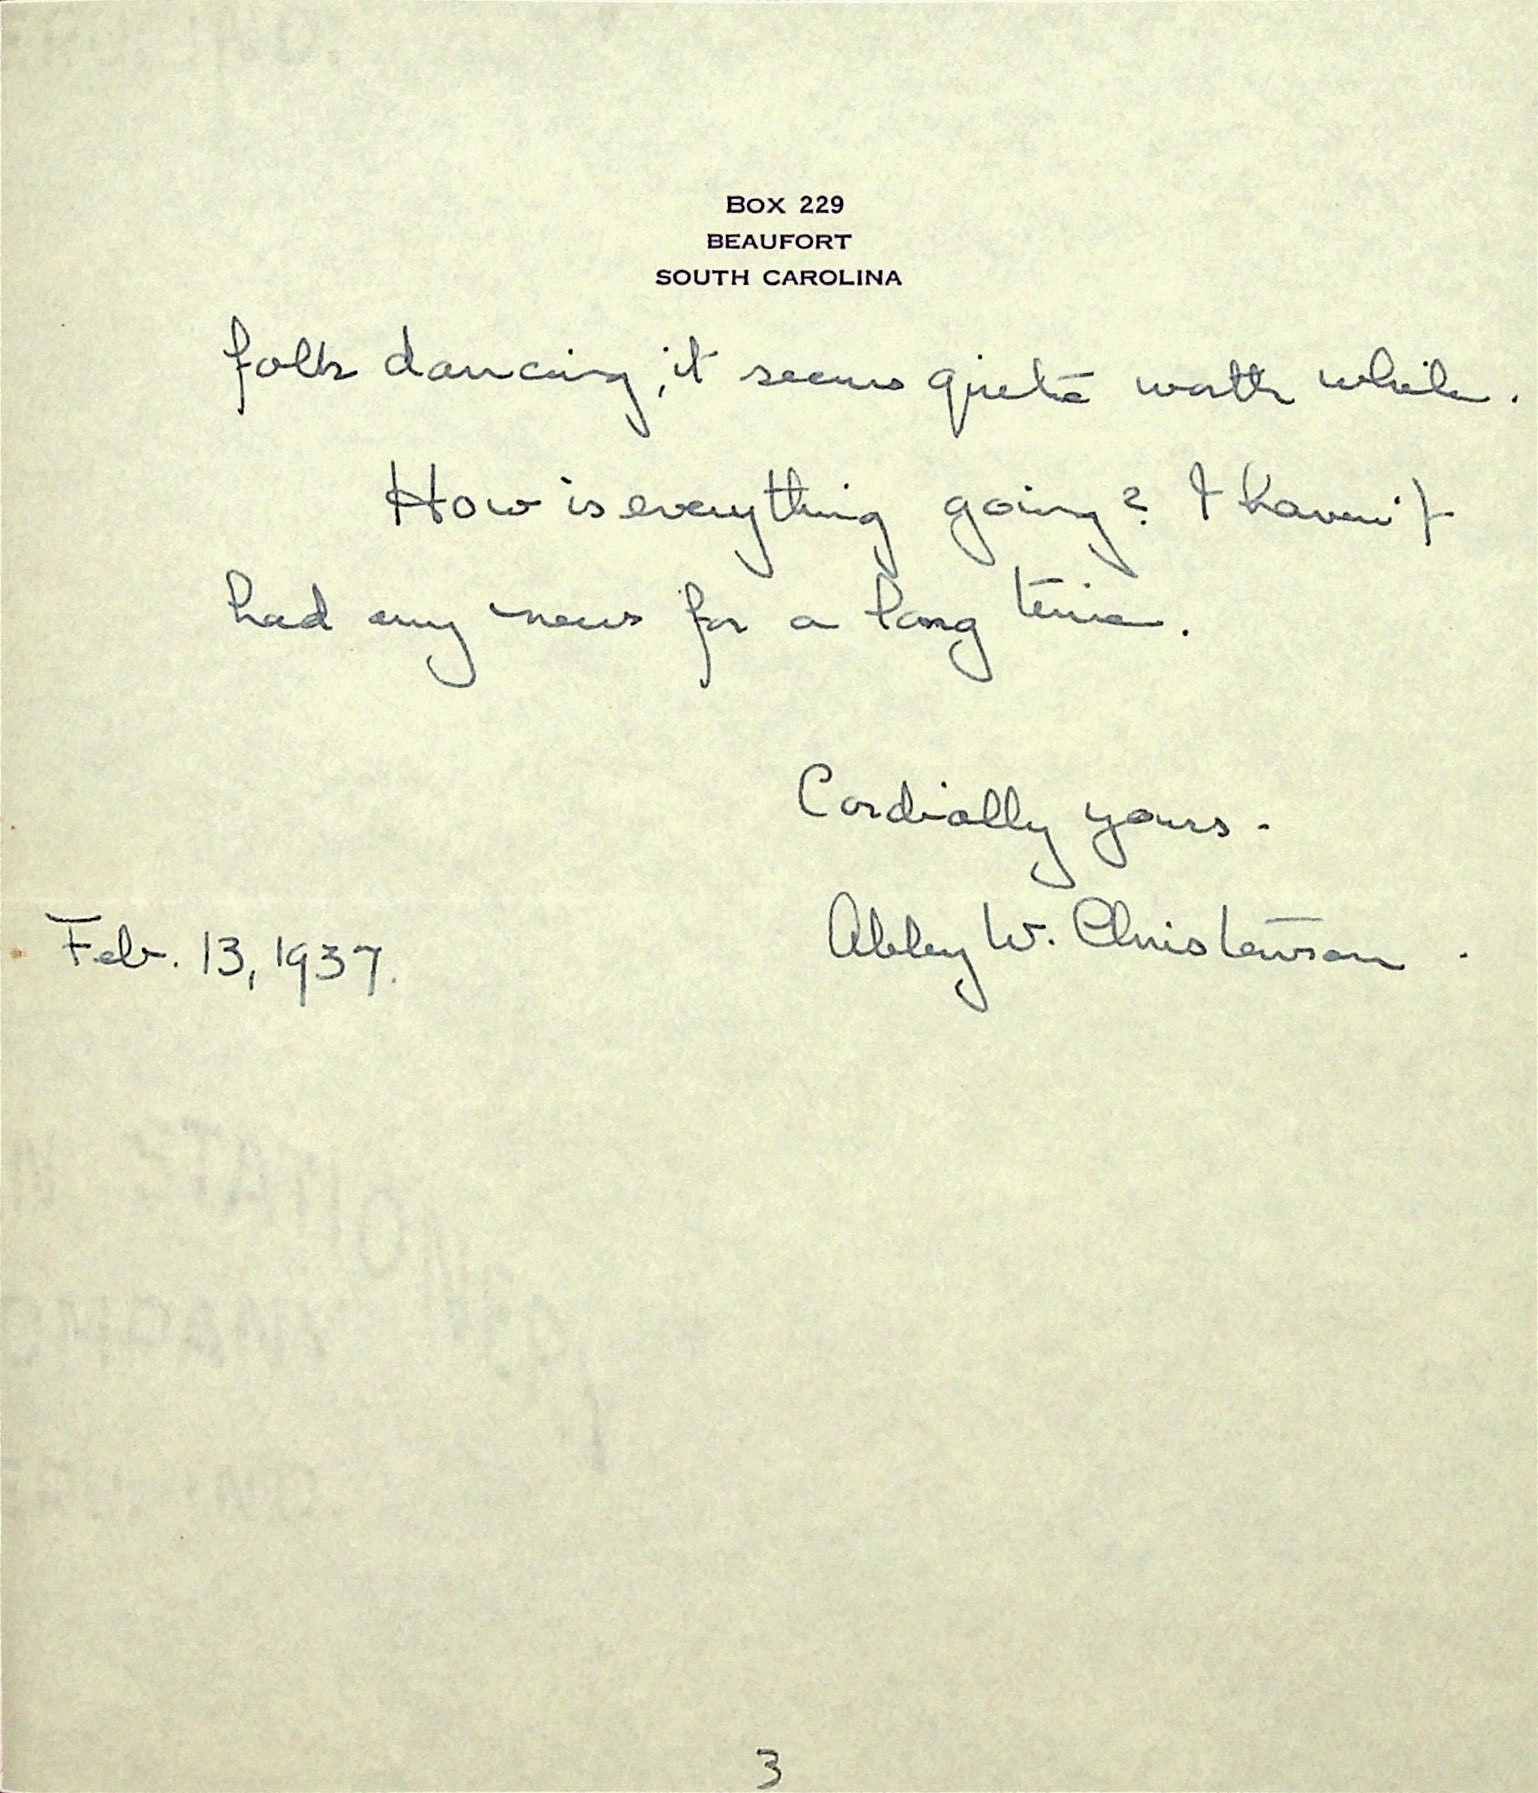 BOX 229
BEAUFORT
SOUTH CAROLINA
folk dancing, it seems quite worth while.
How is everything going? I haven't
had any news for a long time.
Cordially yours.
Abby W. Christensen.
Feb. 13, 1937.
3